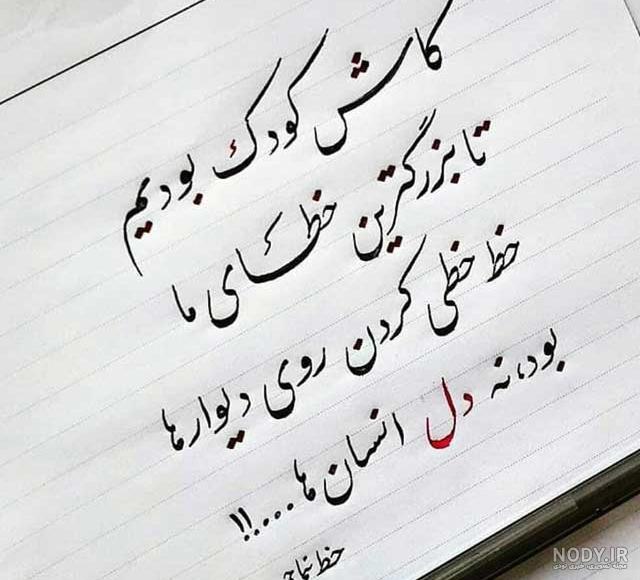 کاش کودک بودیم
تا بزرگترین خطای ما
خط خطی کردن روی دیوارها
بود، نه دل انسان ها...!!
NODY.IR